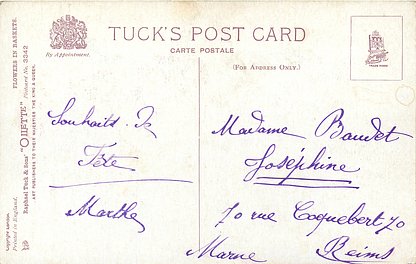 TUCK'S POST CARD
CARTE POSTALE
By Appointment.
(FOR ADDRESS ONLY.)
TRADE MARK
FLOWERS IN BASKETS.
Raphael Tuck & Sons' "OILETTE" Postcard No. 3342
ART PUBLISHERS TO THEIR MAJESTIES THE KING & QUEEN.
Copyright London.
Printed in England.
Souhaits de
Fête
Marthe
Madame Baudet
Joséphine
70 rue Coquebert 70
Marne Reims